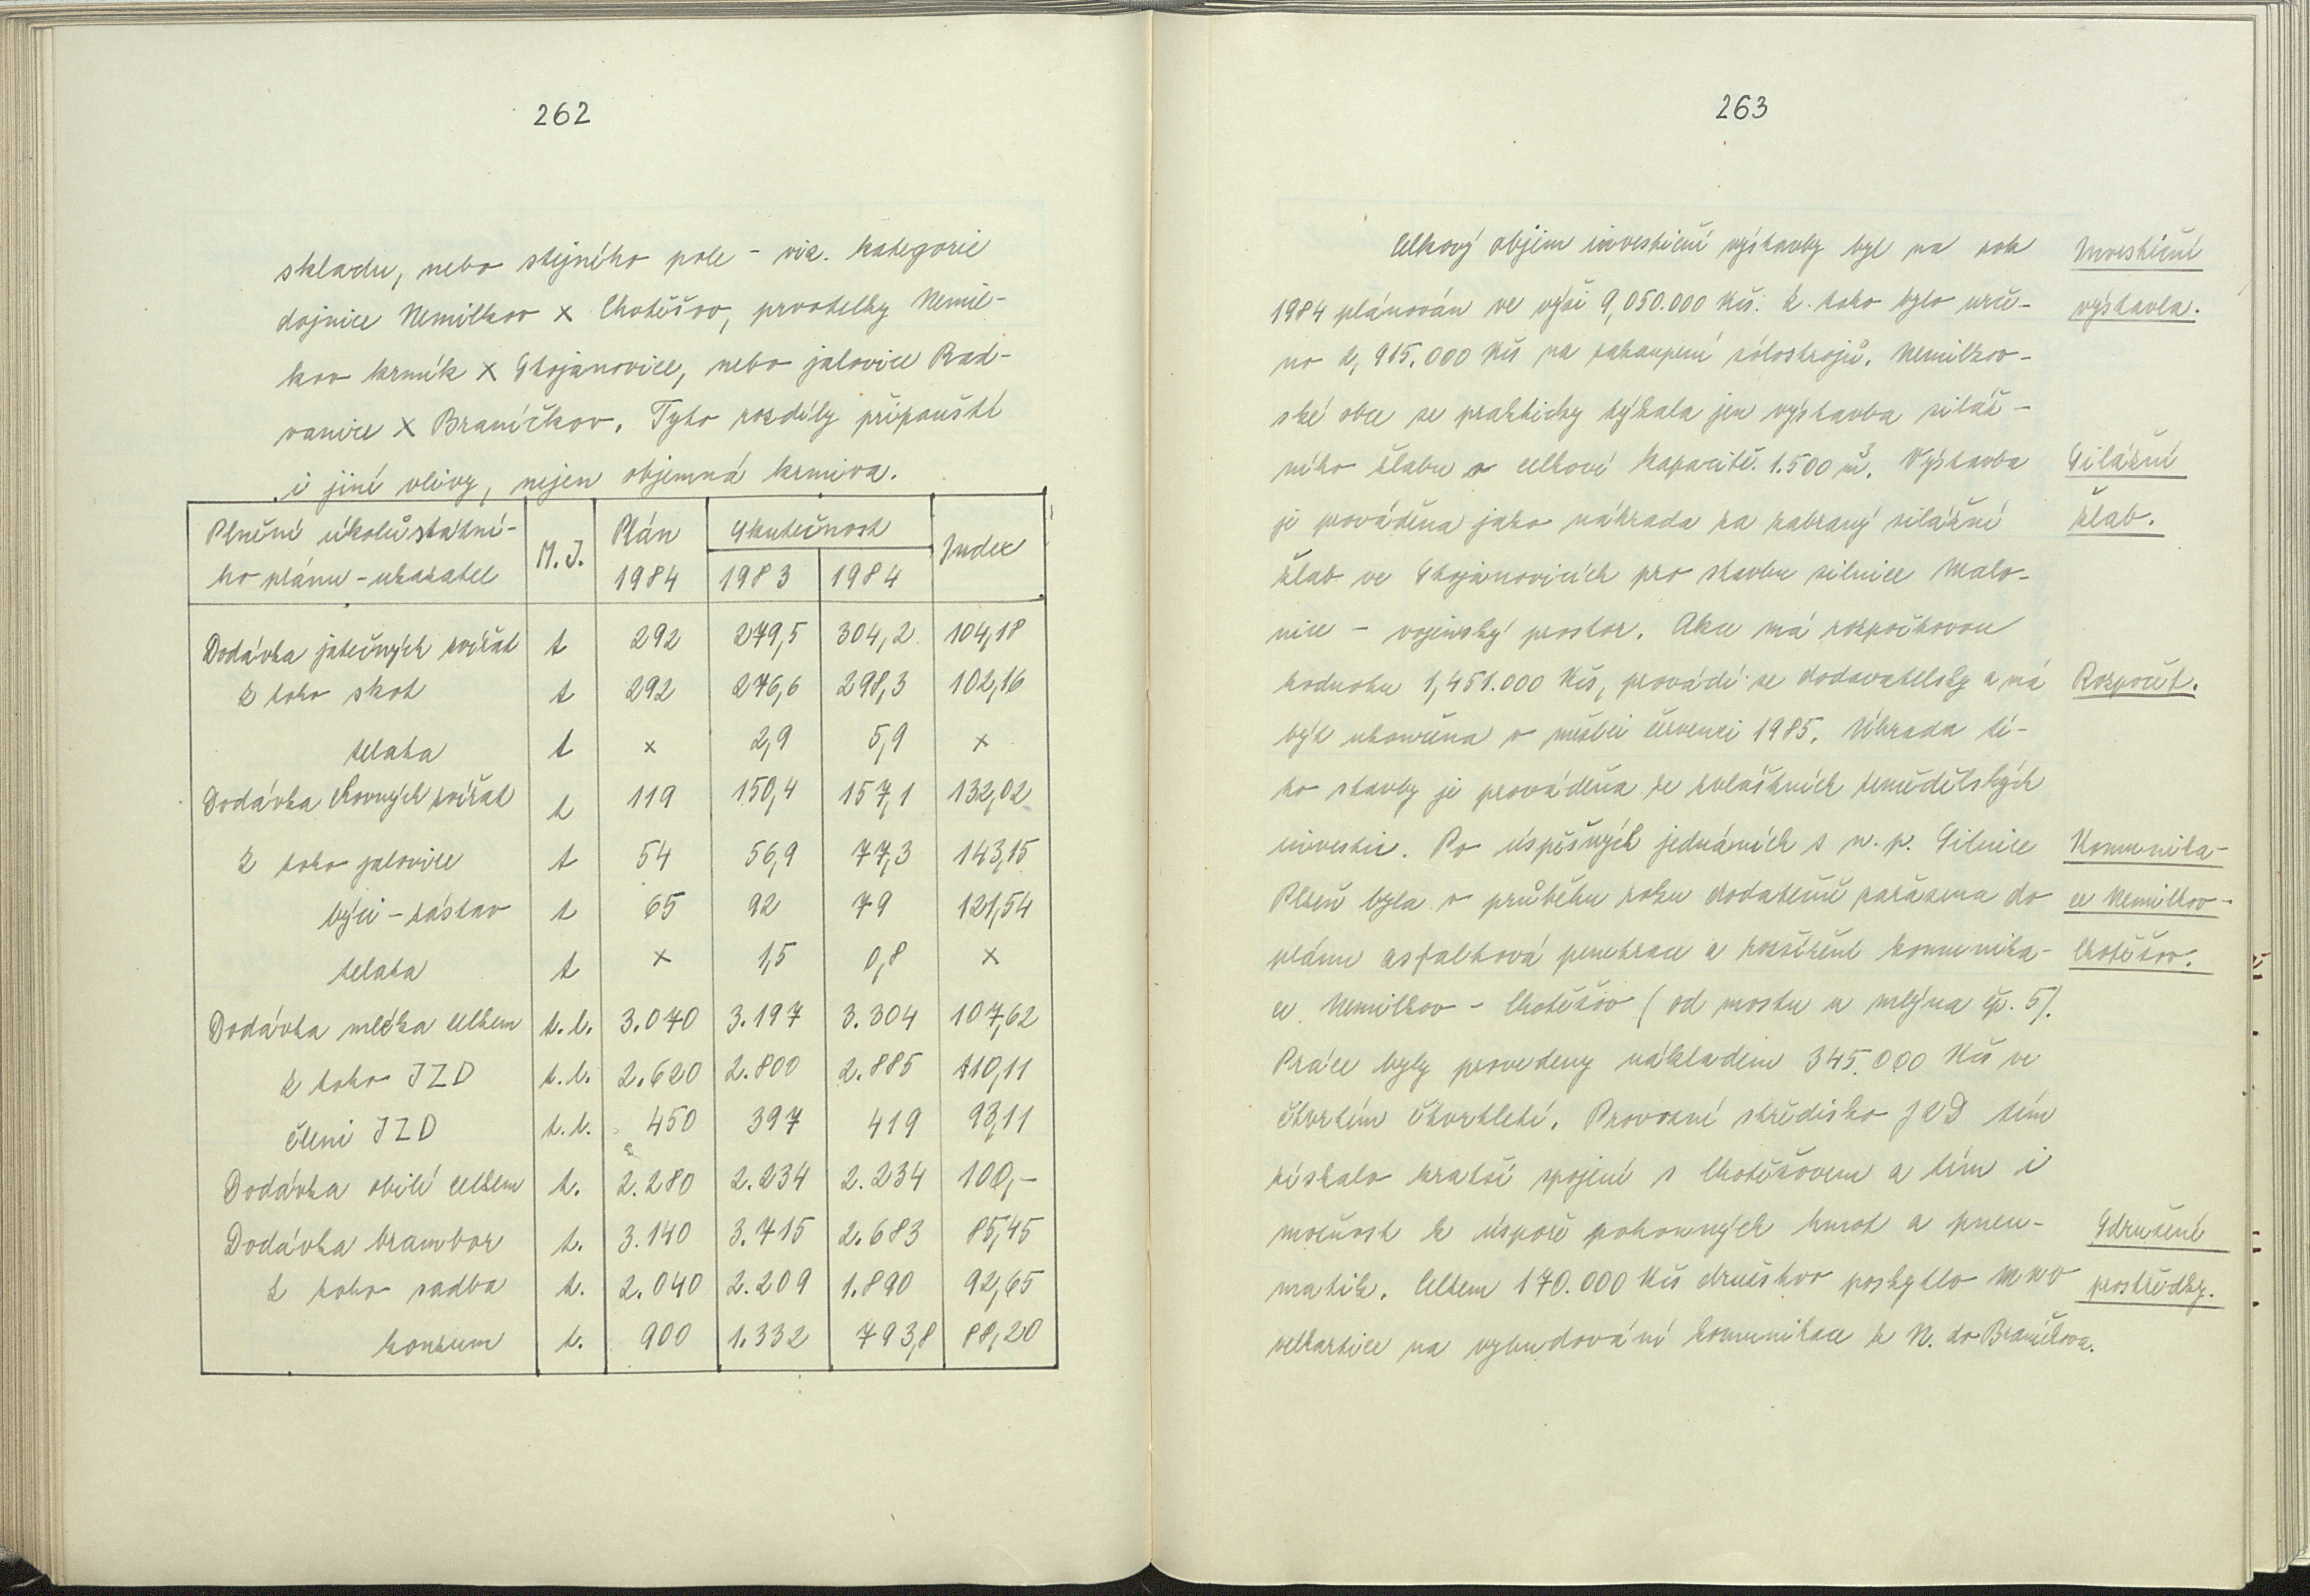 262
skladu, nebo stejného pole - viz. kategorie
dojnice Nemilkov x Chotěšov, prvotelky Nemil-
kov krmík x Stojanovice, nebo jalovice Rad-
vanice x Braníčkov. Tyto rozdíly připouští
i jiné vlivy, nejen objemná krmiva.
Plnění úkolů státní-
ho plánu - ukazatel M.J. Plán 1984 Skutečnost 1983 1984 Index
Dodávka jatečných zvířat t 292 279,5 304,2 104,18
z toho skot t 292 276,6 298,3 102,16
telata t x 2,9 5,9 x
Dodávka chovných zvířat t 119 150,4 157,1 132,02
z toho jalovice t 54 56,9 77,3 143,15
býci - zástav t 65 92 79 121,54
telata t x 1,5 0,8 x
Dodávka mléka celkem t.l. 3.070 3.197 3.304 107,62
z toho JZD t.l. 2.620 2.800 2.885 110,11
členi JZD t.l. 450 397 419 93,11
Dodávka obilí celkem t. 2.280 2.234 2.234 100,-
Dodávka brambor t. 3.140 3.715 2.683 85,45
z toho sadba t. 2.040 2.209 1.890 92,65
konzum t. 900 1.332 793,8 88,20
263
Celkový objem investiční výstavby byl na rok Investiční
1984 plánován ve výši 9,050.000 Kčs. Z toho bylo urče- výstavba.
no 2,915.000 Kčs na zakoupení strojů. Nemilkov-
ské obce se prakticky týkala jen výstavba siláž-
ního žlabu o celkové kapacitě 1.500 m3. Výstavba Silážní
je prováděna jako náhrada za zabraný silážní žlab.
žlab ve Stojanovicích pro stavbu silnice Malo-
nice - vojenský prostor. Akce má rozpočtovou
hodnotu 1,451.000 Kčs, provádí se dodavatelsky a má Rozpočet.
být ukončena v měsíci červenci 1985. Úhrada té-
to stavby je prováděna ze zvláštních zemědělských
investic. Po úspěšných jednáních s n.p. Silnice Komunika-
Plzeň byla v průběhu roku dodatečně zařazena do ce Nemilkov-
plánu asfaltová penetrace a rozšíření komunika- Chotěšov.
ce Nemilkov - Chotěšov (od mostu u mlýna čp. 5).
Práce byly provedeny nákladem 345.000 Kčs ve
čtvrtém čtvrtletí. Provozní středisko JZD tím
získalo kratší spojení s Chotěšovem a tím i
možnost k úspoře pohonných hmot a pneu- Sdružené
matik. Celkem 170.000 Kčs družstvo poskytlo MNV prostředky.
Velhartice na vybudování komunikace z N. do Braníčkova.